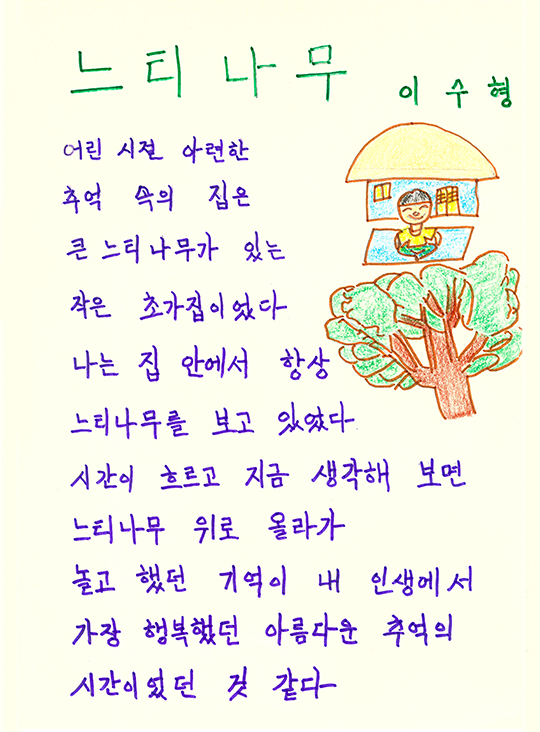 느티나무
이수형
어린 시절 아련한
추억 속의 집은
큰 느티나무가 있는
작은 초가집이었다
나는 집 안에서 항상
느티나무를 보고 있었다
시간이 흐르고 지금 생각해 보면
느티나무 위로 올라가
놀고 했던 기억이 내 인생에서
가장 행복했던 아름다운 추억의
시간이었던 것 같다